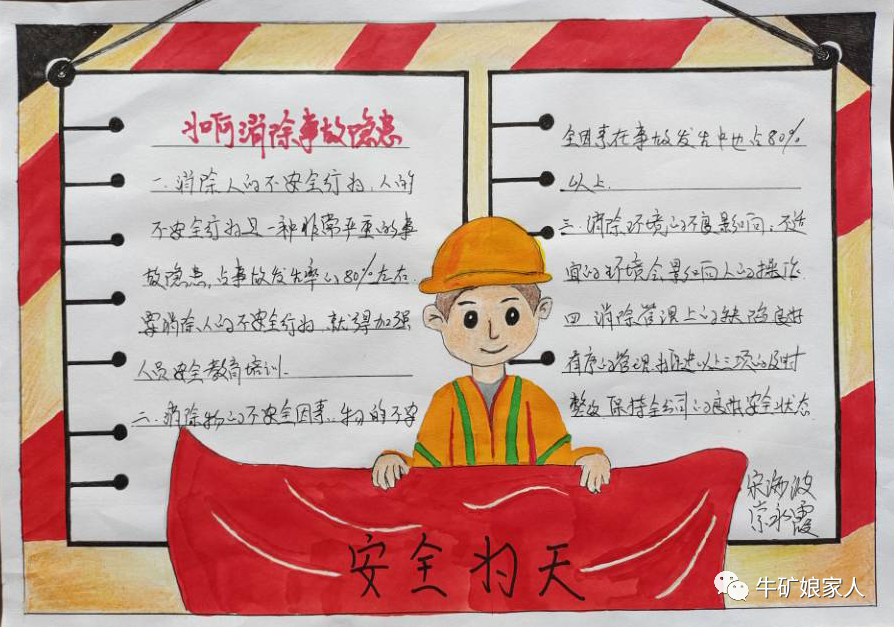 如何消除事故隐患
一.消除人的不安全行为,人的
不安全行为是一种非常严重的事
故隐患,占事故发生率的80%左右.
要消除人的不安全行为,就得加强
人员安全教育培训.
二.消除物的不安全因素.物的不安
全因素在事故发生中也占80%
以上.
三.消除环境的不良影响,不适
宜的环境会影响人的操作
四.消除管理上的缺陷良好
有序的管理,推进以上三项的及时
整改保持全公司的良性安全状态
宋海波
宗永霞
安全为天
牛矿娘家人